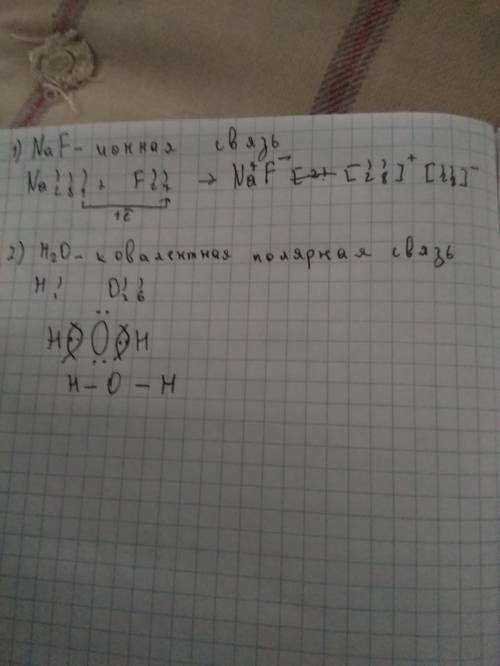 1) NaF - ионная связь
Na ) ) ) + F ) ) → Na⁺F⁻ [ ) ) ]⁺ [ ) ) ]⁻
1ē
2) H₂O - ковалентная полярная связь
H ) O ) )
1 2 6
H : Ö : H
H – O – H